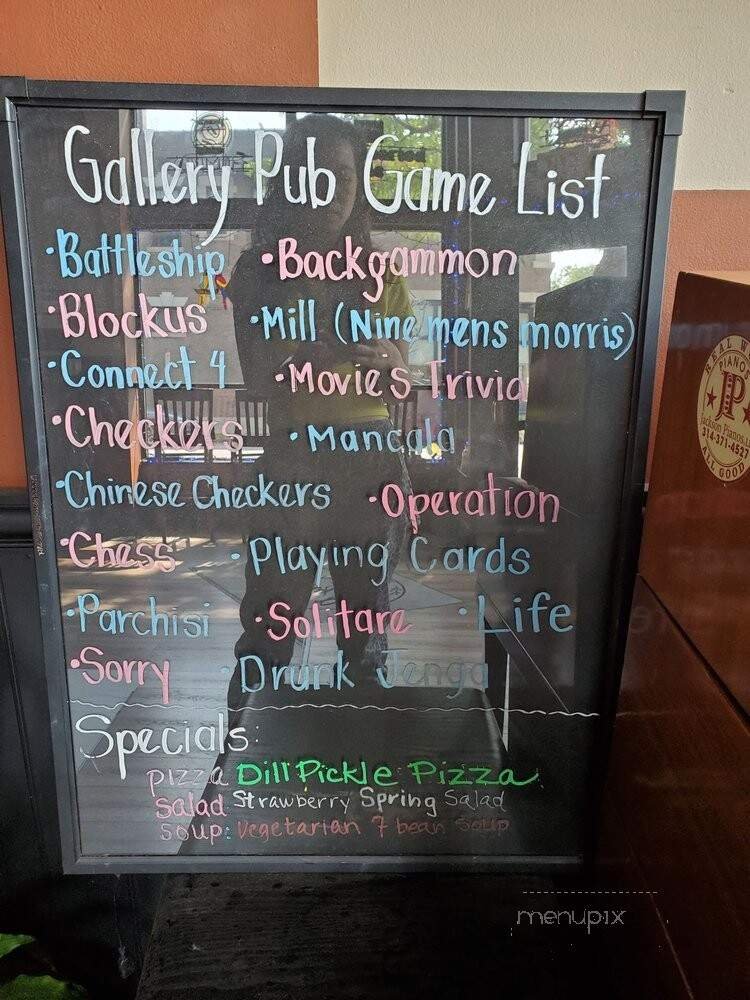 Gallery Pub Game List
•Battleship •Backgammon
•Blockus •Mill (Nine mens morris)
•Connect 4 •Movie's Trivia
•Checkers •Mancala
•Chinese Checkers •Operation
•Chess •Playing Cards
•Parchisi •Solitare •Life
•Sorry •Drunk Jenga
Specials:
pizza Dill Pickle Pizza
Salad Strawberry Spring Salad
soup: vegetarian 7 bean soup
PIANOS
JP
Jackson Pianos
314-371-4527
menupix